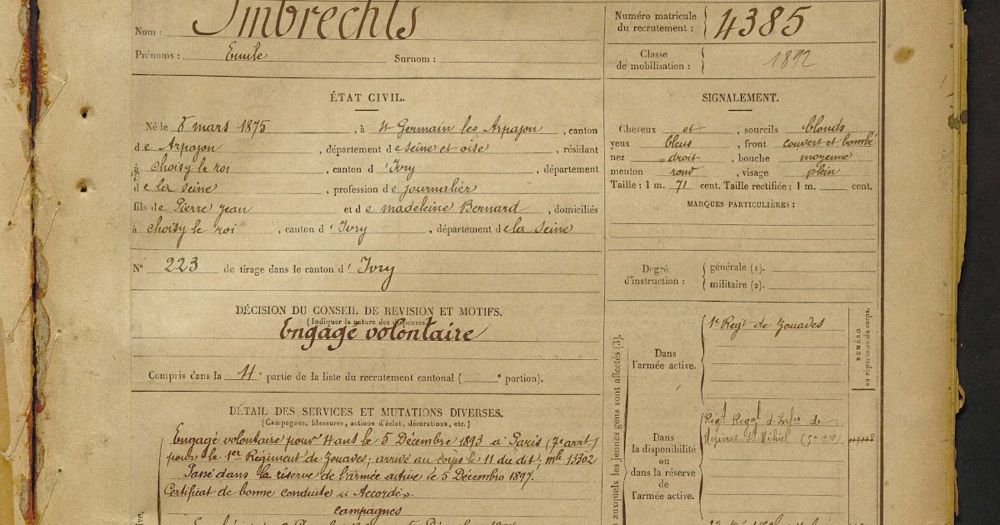 Nom : Imbrechts
Prénoms : Emile Surnom :
Numéro matricule du recrutement : 4385
Classe de mobilisation : 1892
ÉTAT CIVIL.
Né le 8 mars 1875, à St Germain les Arpajon, canton
de Arpajon, département de seine et oise, résidant
à choisy le roi, canton d'Ivry, département
de la seine, profession de journalier
fils de Pierre Jean et de madeleine Bernard, domiciliés
à choisy le roi, canton d'Ivry, département de la seine
N° 223 de tirage dans le canton d'Ivry
SIGNALEMENT.
Cheveux et, sourcils blonds
yeux bleus, front couvert et bombé
nez droit, bouche moyenne
menton rond, visage plein
Taille : 1 m. 71 cent. Taille rectifiée : 1 m. cent.
MARQUES PARTICULIÈRES :
Degré d'instruction : générale (1).
militaire (2).
DÉCISION DU CONSEIL DE REVISION ET MOTIFS.
(Indiquer la nature des dispenses)
Engagé volontaire
Compris dans la 4e partie de la liste du recrutement cantonal ( e portion).
DÉTAIL DES SERVICES ET MUTATIONS DIVERSES.
(Campagnes, blessures, actions d'éclat, décorations, etc.)
Engagé volontaire pour 4 ans le 5 Décembre 1893 à Paris (7e arrt)
pour le 1er Régiment de Zouaves; arrivé au corps le 11 du dit; mle 13302
Passé dans la réserve de l'armée active le 5 Décembre 1897.
Certificat de bonne conduite « Accordé ».
campagnes
Dans l'armée active.
1er Régt de Zouaves
NUMÉRO
au répertoire du corps.
auxquels les jeunes gens sont affectés (3).
Dans la disponibilité ou dans la réserve de l'armée active.
Régt d'Infie de
Mihiel